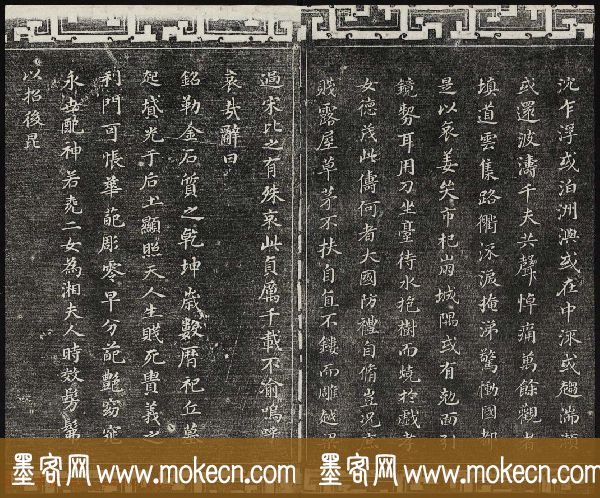 沉乍浮或泊洲渙或在中流或趨湍瀨
或還波濤千夫共聲悼痛萬餘觀者
填道雲集路衢泳淚掩涕驚慟國都
是以哀姜哭市杞崩城隅或有勊面引
鏡剺耳用刀坐臺待水抱樹而燒於戲孝
女德茂此儔何者大國防禮自脩豈況庶
賤露屋草茅不扶自直不鏤而雕越梁
過宋比之有殊哀此貞厲千載不渝嗚呼
哀哉辭曰
銘勒金石質之乾坤歲數曆祀丘墓
起墳光于后土顯照天人生賤死貴義之
利門何悵華葩彫零早分葩艷窈窕
永世配神若堯二女為湘夫人時效髣髴
以招後昆
墨客网 www.mokecn.com 墨客网 www.mokecn.com